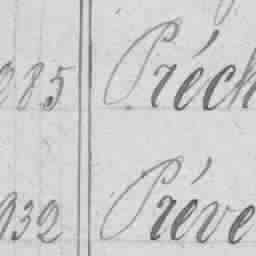 285 Préch
932 Préve